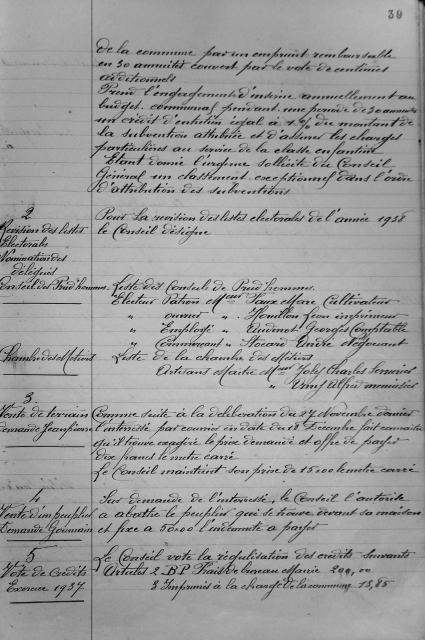 39
de la commune par un emprunt remboursable
en 30 annuités couvert par le vote de centimes
additionnels
Prend l'engagement d'inscrire annuellement au
budget communal pendant une période de 30 années
un crédit d'entretien égal à 1% du montant de
la subvention attribuée et d'assurer les charges
particulières au service de la classe enfantine
Etant donné l'urgence sollicite du Conseil
Général un classement exceptionnel dans l'ordre
d'attribution des subventions
2
Révision des listes
Electorales
Nomination des
délégués
Pour la révision des listes électorales de l'année 1938
le Conseil désigne
Conseil des Prud'hommes
Liste des Conseils de Prud'hommes.
Electeur Patron Mr Vaux Marc Cultivateur
" ouvrier " Léon imprimeur
" Employé " Georges Comptable
" Commerçant " André Négociant
Chambre des Métiers
Liste de la chambre des Métiers
Artisans Maître Mr Charles Serrurier
" Alfred menuisier
3
Vente de terrain
demande Jeanpierre
Comme suite à la délibération du 27 Novembre dernier
l'intéressé par courrier en date du 18 Décembre fait connaître
qu'il trouve exagéré le prix demandé et offre de payer
dix francs le mètre carré
Le Conseil maintient son prix de 15.00 le mètre carré
4
Vente d'un peuplier
Demande
Sur demande de l'intéressé, le Conseil l'autorise
à abattre le peuplier qui se trouve devant sa maison
et fixe à 50.00 l'indemnité à payer
5
Vote de Crédits
Exercice 1937.
Le Conseil vote la régularisation des crédits suivants
Articles 2 B.P. Frais de bureau Mairie 200,00
3 Imprimés à la charge de la commune 15,85